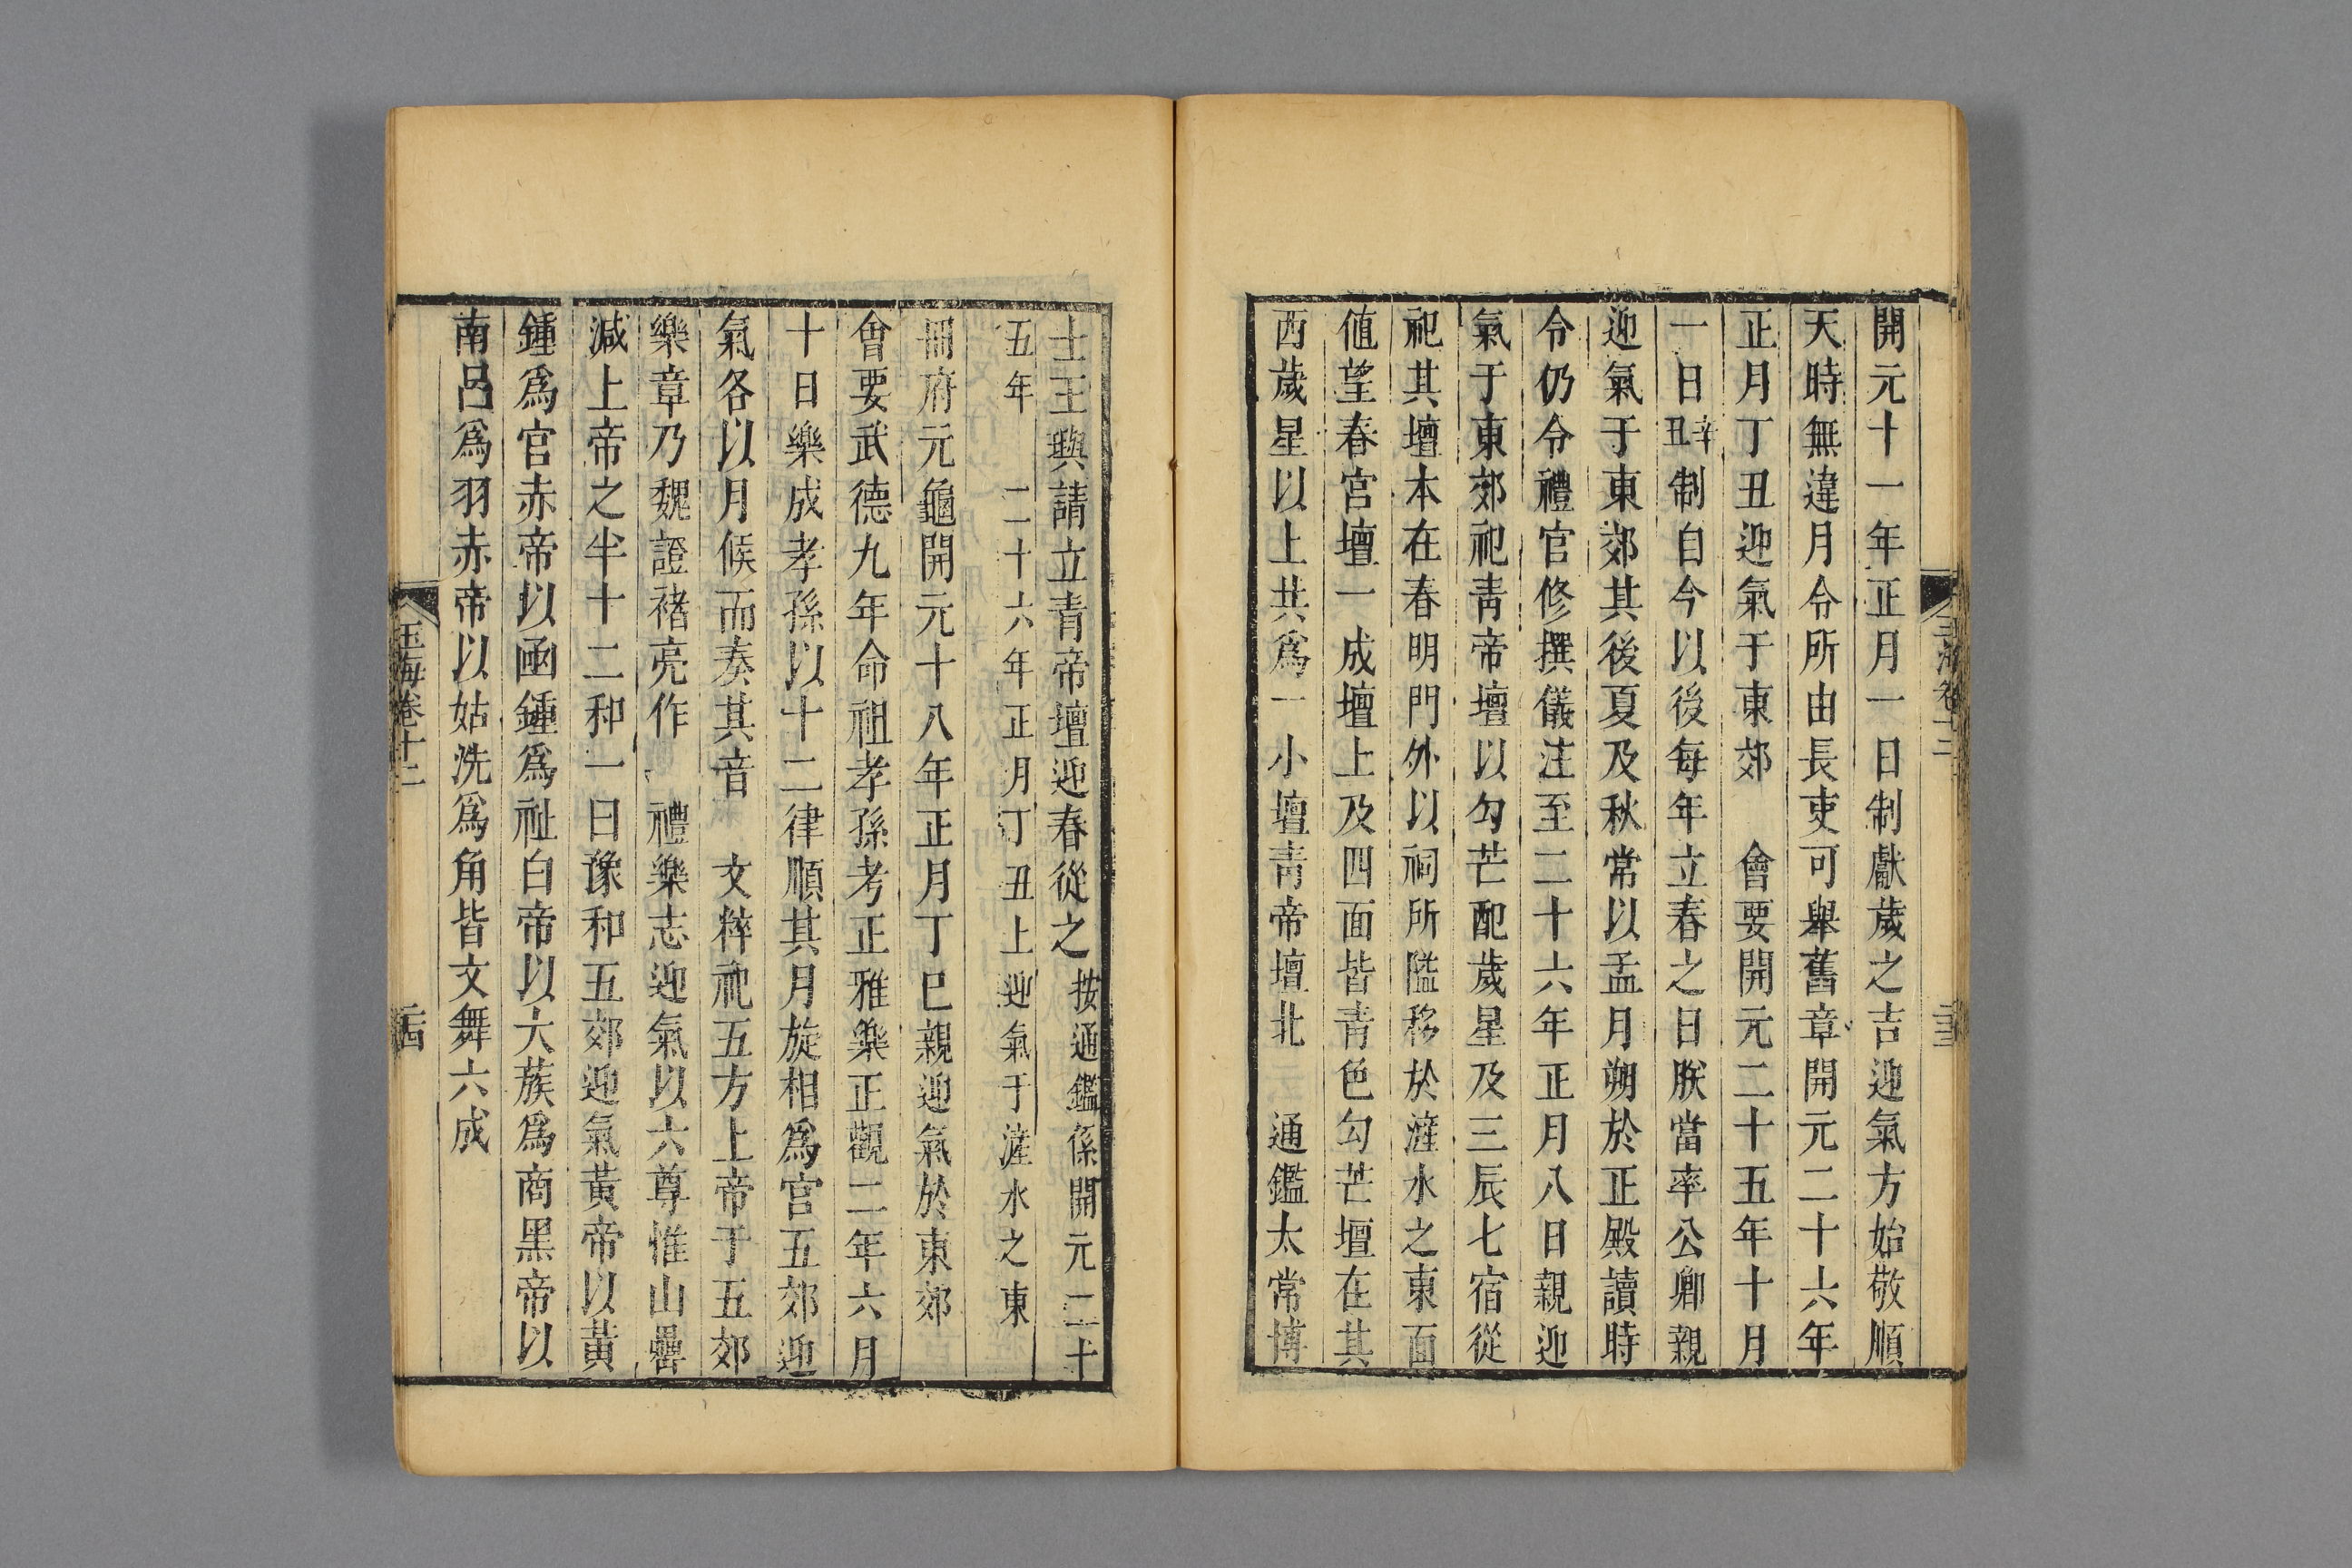 開元十一年正月一日制獻歲之吉迎氣方始敬順
天時無違月令所由長吏可舉舊章開元二十六年
正月丁丑迎氣于東郊　會要開元二十五年十月
一日辛丑制自今以後每年立春之日朕當率公卿親
迎氣于東郊其後夏及秋常以孟月朔於正殿讀時
令仍令禮官修撰儀注至二十六年正月八日親迎
氣于東郊祀青帝壇以勾芒配歲星及三辰七宿從
祀其壇本在春明門外以祠所隘移於滻水之東面
値望春宮壇一成壇上及四面皆青色勾芒壇在其
西歲星以上共爲一小壇青帝壇北　通鑑太常博
士王璵請立青帝壇迎春從之按通鑑係開元二十
五年　二十六年正月丁丑上迎氣于滻水之東
冊府元龜開元十八年正月丁巳親迎氣於東郊
會要武德九年命祖孝孫考正雅樂正觀二年六月
十日樂成孝孫以十二律順其月旋相爲宮五郊迎
氣各以月候而奏其音　文粹祀五方上帝于五郊
樂章乃魏證褚亮作　禮樂志迎氣以六尊惟山罍
減上帝之半十二和一曰豫和五郊迎氣黃帝以黃
鍾爲宮赤帝以函鍾爲祉白帝以大蔟爲商黑帝以
南呂爲羽赤帝以姑洗爲角皆文舞六成
玉海卷十二
二十四